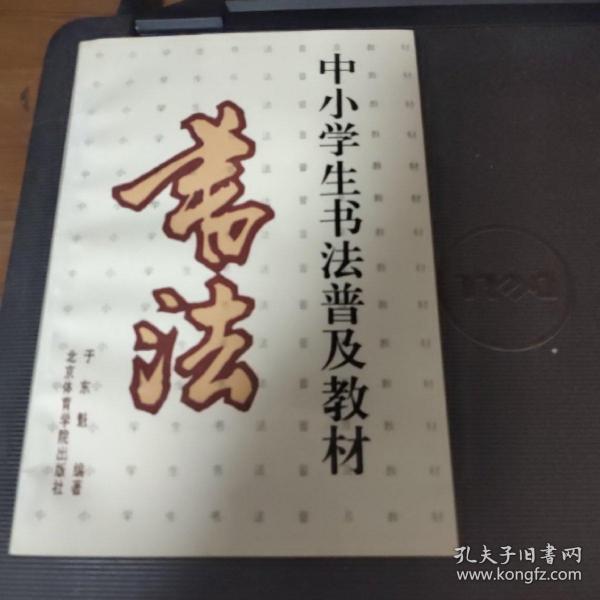 中小学生书法普及教材
書法
于东魁 编著
北京体育学院出版社
DELL
孔夫子旧书网
www.kongfz.com